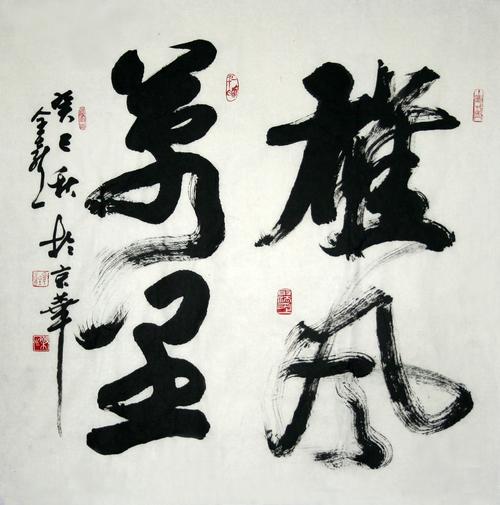 雄風
萬里
癸巳秋於京華